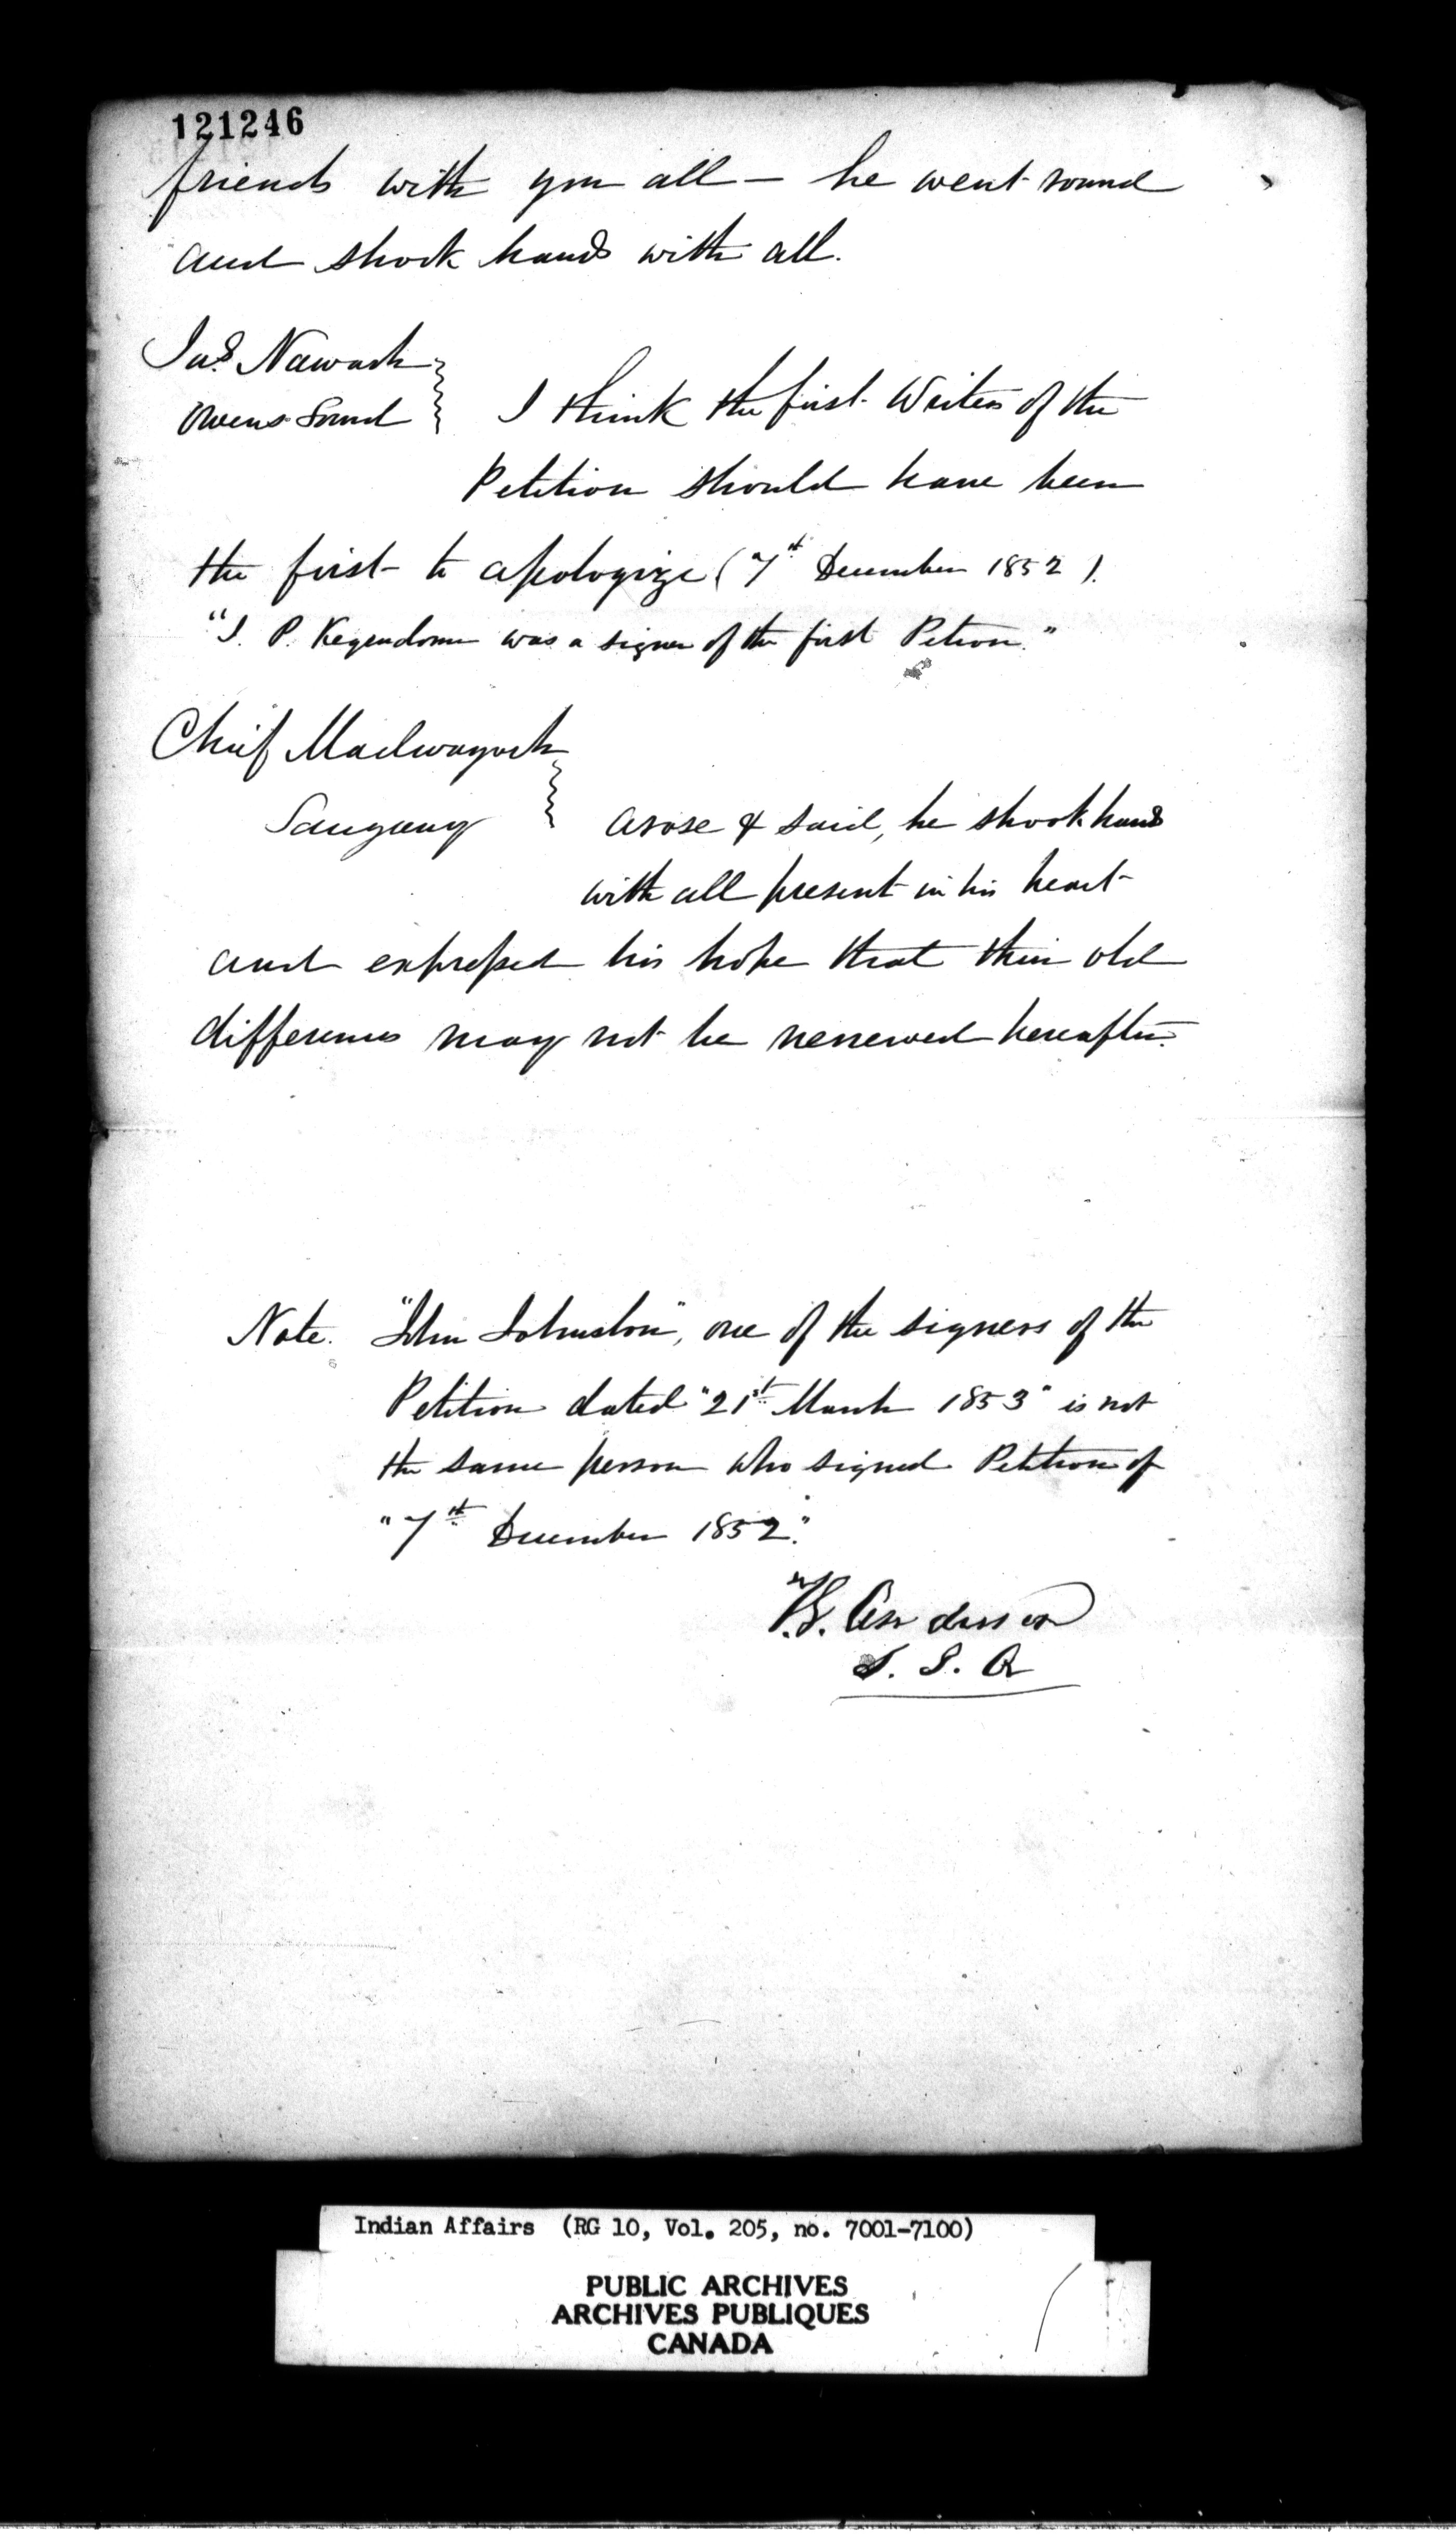 121246
friends with you all — he went round
and shook hands with all.
Jas. Nawash
Owens Sound } I think the first Writers of the
Petition should have been
the first to apologize (7th December 1852).
"J. P. Kegedonce was a signer of the first Petion."
Chief Madwayosh
Saugeeng } arose & said, he shook hands
with all present in his heart
and expressed his hope that their old
differences may not be renewed hereafter.
Note. "John Johnston", one of the signers of the
Petition dated "21st March 1853" is not
the same person who signed Petition of
"7th December 1852."
T. G. Anderson
S. I. A
Indian Affairs (RG 10, Vol. 205, no. 7001-7100)
PUBLIC ARCHIVES
ARCHIVES PUBLIQUES
CANADA